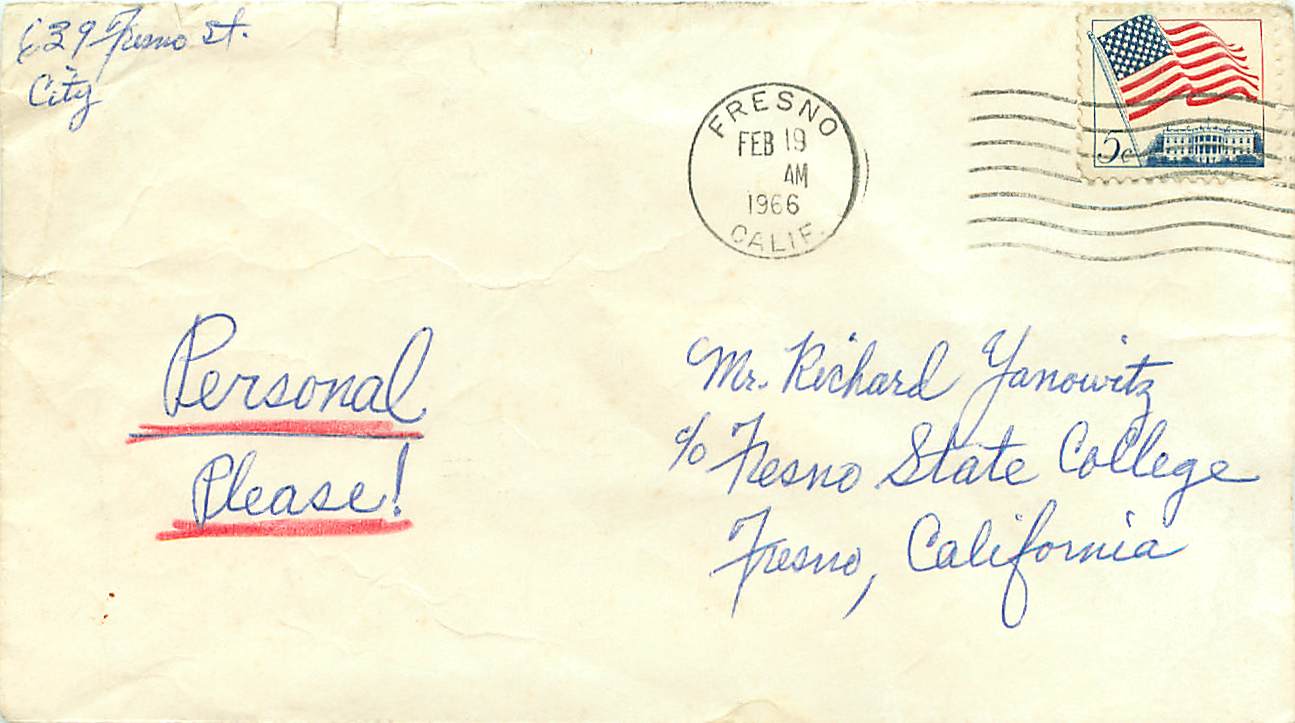 639 Fresno St.
City
FRESNO
FEB 19
AM
1966
CALIF.
5c
Personal
Please!
Mr. Richard Yanowitz
c/o Fresno State College
Fresno, California